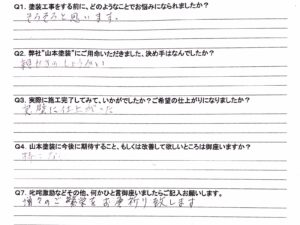 Q1. 塗装工事をする前に、どのようなことでお悩みになられましたか？
そろそろと思います。
Q2. 弊社"山本塗装"にご用命いただきました、決め手はなんでしたか？
親せきのしょうかい
Q3. 実際に施工完了してみて、いかがでしたか？ご希望の仕上がりになりましたか？
完璧に仕上がった
Q4. 山本塗装に今後に期待すること、もしくは改善して欲しいところは御座いますか？
特になし
Q7. 叱咤激励などその他、何かひと言御座いましたらご記入お願いします。
増々のご繁栄をお祈り致します